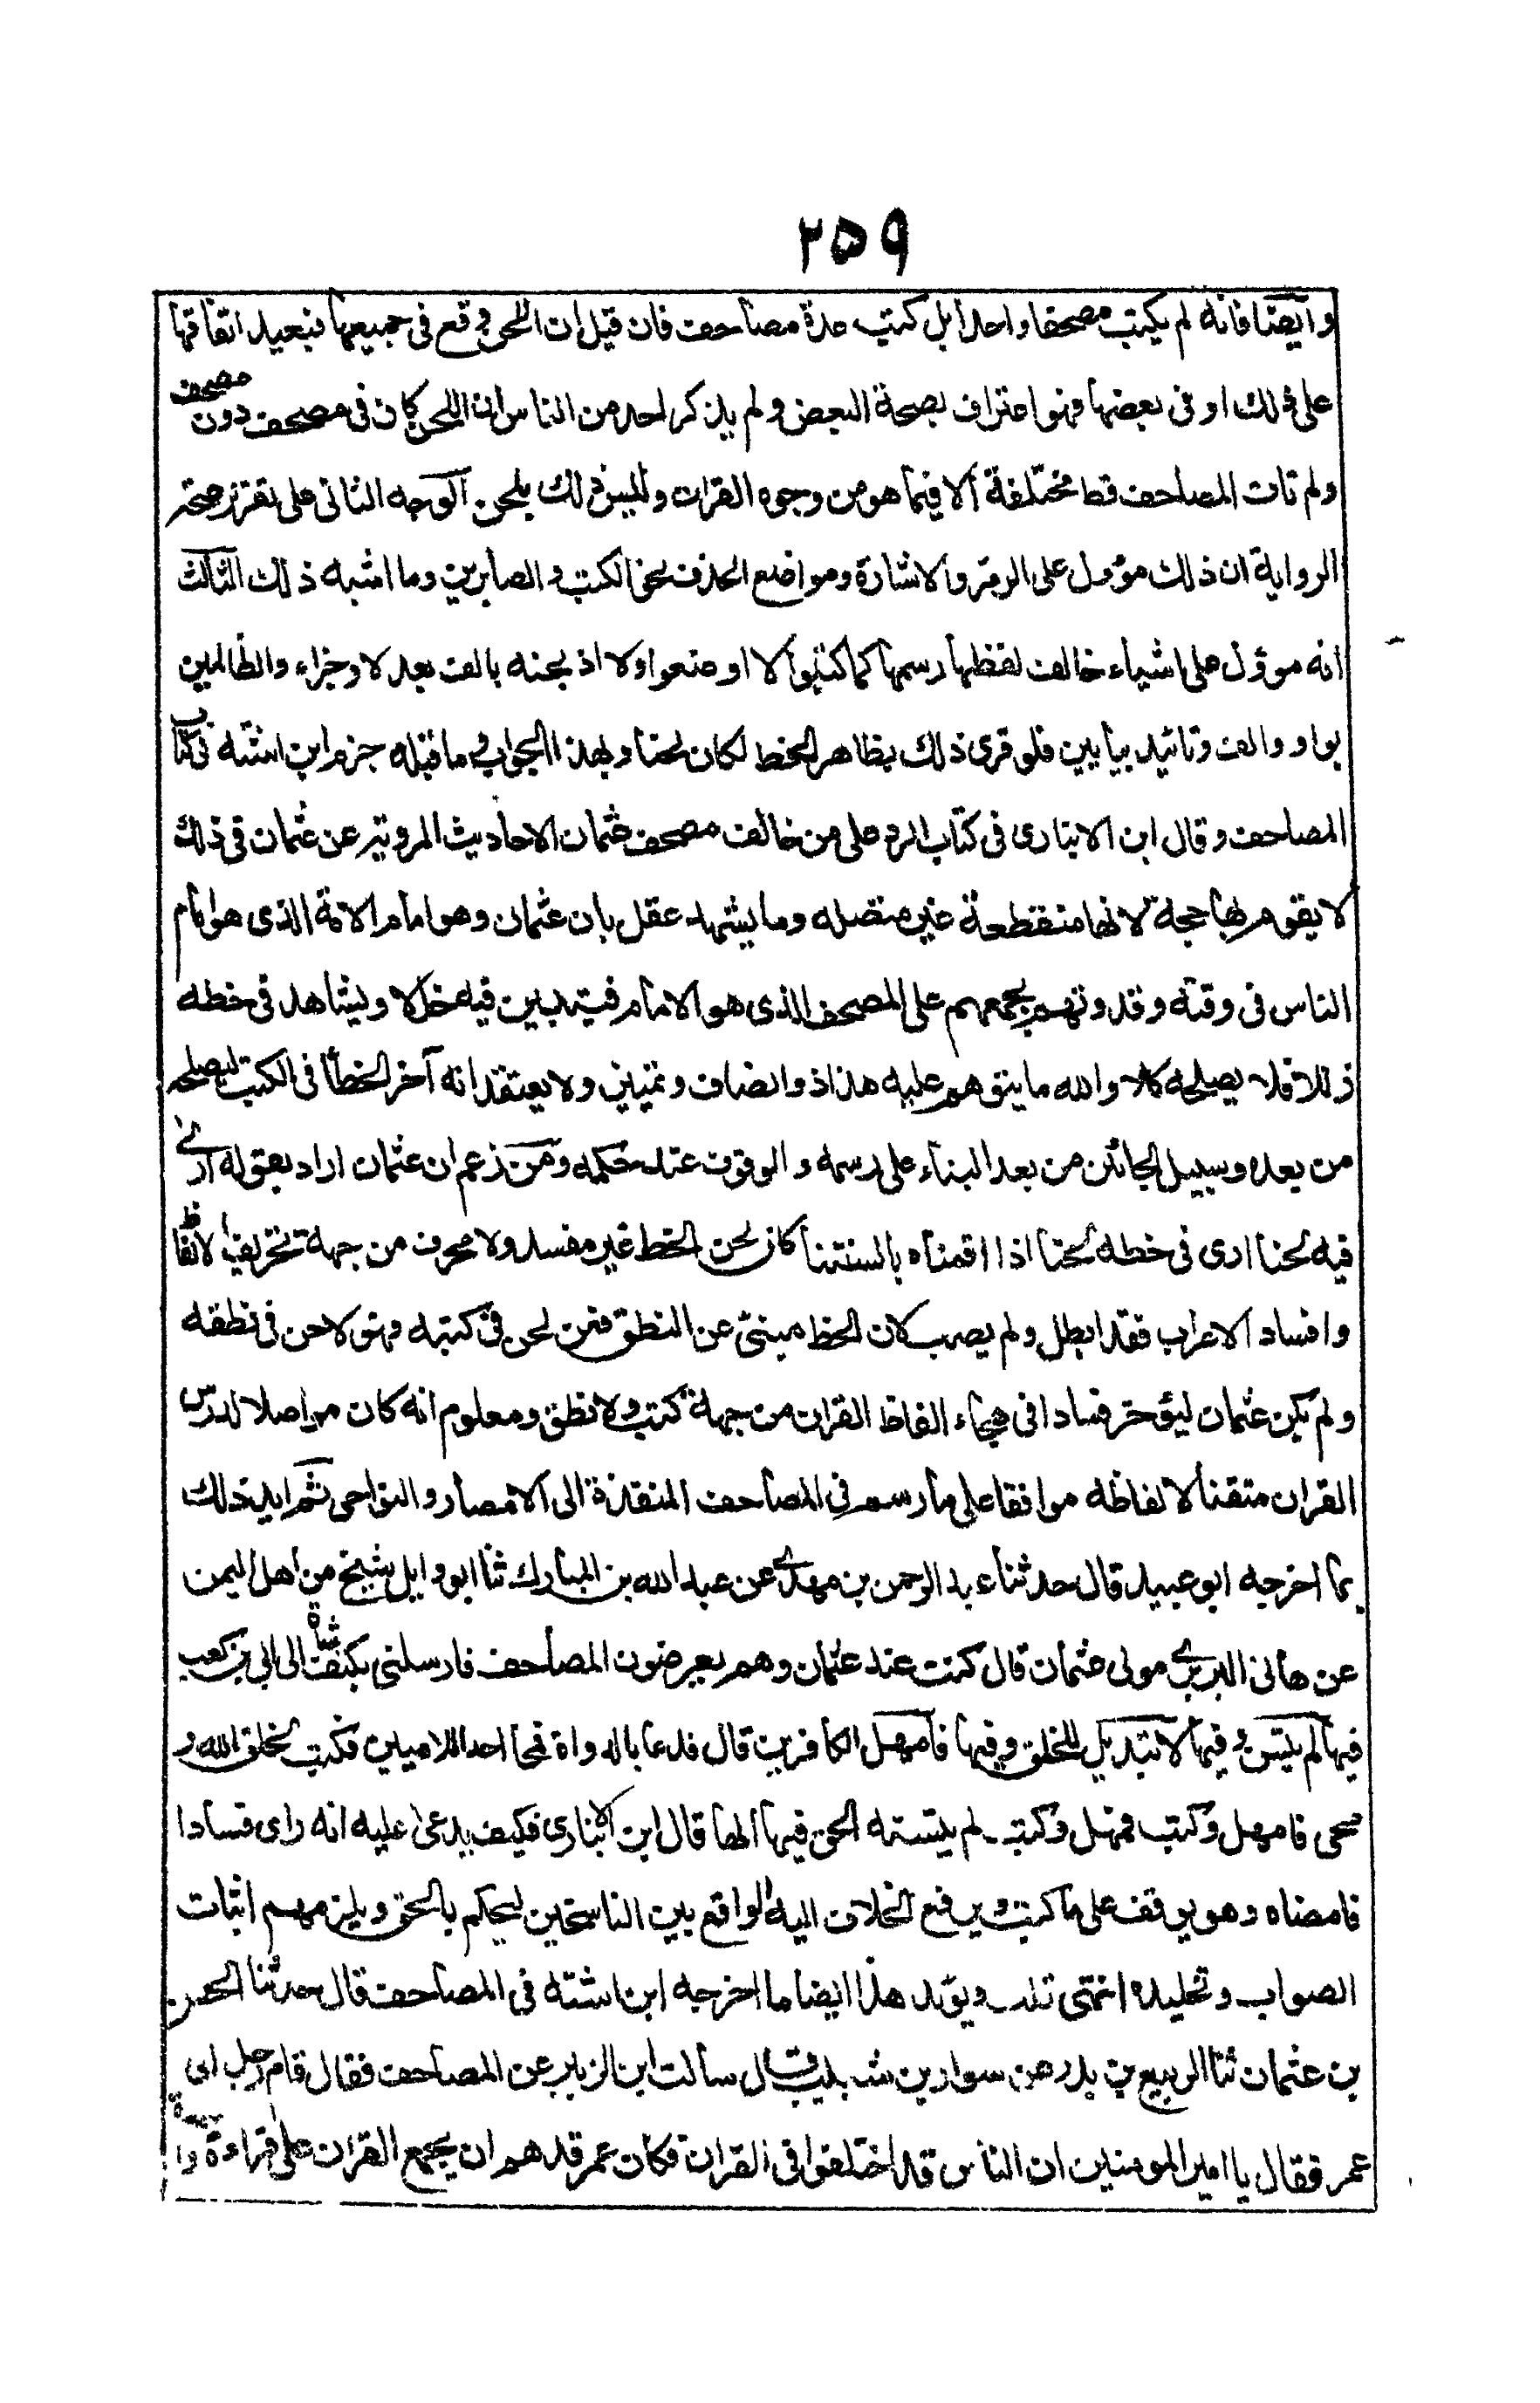 ٢٥٩
وايضا فانه لم يكتب مصحفا واحدا بل كتب عدة مصاحف فان قيل ان اللحن وقع فى جميعها فبعيد اتفاقها
على ذلك او فى بعضها فهو اعتراف بصحة البعض ولم يذكر احد من الناس ان اللحن كان فى مصحف دون مصحف
ولم تات المصاحف قط مختلفة الا فيما هو من وجوه القرات وليس ذلك بلحن الوجه الثانى على تقرير صحة
الرواية ان ذلك مؤول على الرمز والاشارة ومواضع الحذف نحو الكتب والصابرين وما اشبه ذلك الثالث
انه مؤول على اشياء خالف لفظها رسمها كما كتبوا لا اوضعوا ولا اذبحنه بالف بعد لا وجزاء والظالمين
بواو والف وتائيد بيايين فلو قرى ذلك بظاهر الخط لكان لحنا وبهذا الجواب وما قبله جزم ابن اشته فى كتاب
المصاحف وقال ابن الانبارى فى كتاب الرد على من خالف مصحف عثمان الاحاديث المروية عن عثمان فى ذلك
لا يقوم بها حجة لانها منقطعة غير متصله وما يشهد عقل بان عثمان وهو امام الامة الذى هو امام
الناس فى وقته وقدوتهم بجمعهم على المصحف الذى هو الامام فيتبين فيه خللا ويشاهد فى خطه
زللا فلا يصلحه كلا والله ما يتوهم عليه هذا ذو انصاف وتمييز ولا يعتقد انه آخر الخطأ فى الكتب ليصلحه
من بعده وسبيل الجائن من بعد البناء على رسمه والوقوف عند حكمه ومن زعم ان عثمان اراد بقوله ارى
فيه لحنا ارى فى خطه لحنا اذا اقمناه بالسنتنا كان لحن الخط غير مفسد ولا محرف من جهة تحريف الالفاظ
وافساد الاعراب فقد ابطل ولم يصب لان الخط مبنئ عن النطق فمن لحن فى كتبه فهو لاحن فى نطقه
ولم يكن عثمان ليؤخر فسادا فى هجاء الفاظ القران من جهة كتب ولا نطق ومعلوم انه كان مواصلا لدرس
القران متقنا لالفاظه موافقا على ما رسم فى المصاحف المنفذة الى الامصار والنواحى ثم ايد ذلك
بما اخرجه ابو عبيد قال حدثنا عبد الرحمن بن مهدى عن عبد الله بن المبارك ثنا ابو وايل شيخ من اهل اليمن
عن هانى البربرى مولى عثمان قال كنت عند عثمان وهم يعرضون المصاحف فارسلنى بكتف شاة الى ابى بن كعب
فيها لم يتسن وفيها لا تبديل للخلق وفيها فامهل الكافرين قال فدعا بالدواة فمحا احد اللامين فكتب لخلق الله و
محى فامهل وكتب فمهل وكتب لم يتسنه الحق فيها الها قال ابن الانبارى فكيف يدعى عليه انه راى فسادا
فامضاه وهو يوقف على ما كتب ويرفع الخلاف اليه الواقع بين الناسخين ليحكم بالحق ويلزمهم اثبات
الصواب وتخليده انتهى قلت ويؤيد هذا ايضا ما اخرجه ابن اشته فى المصاحف قال حدثنا الحسن
بن عثمان ثنا الربيع بن بدر عن سوار بن شبيب قال سالت ابن الزبير عن المصاحف فقال قام رجل الى
عمر فقال يا امير المومنين ان الناس قد اختلفوا فى القران فكان عمر قد هم ان يجمع القران على قراءة